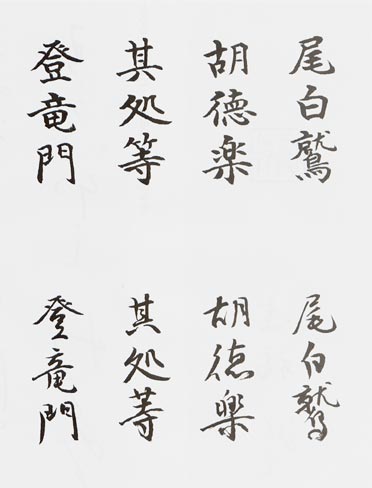 尾白鷲
胡徳楽
其処等
登竜門
尾白鷲
胡徳楽
其処等
登竜門